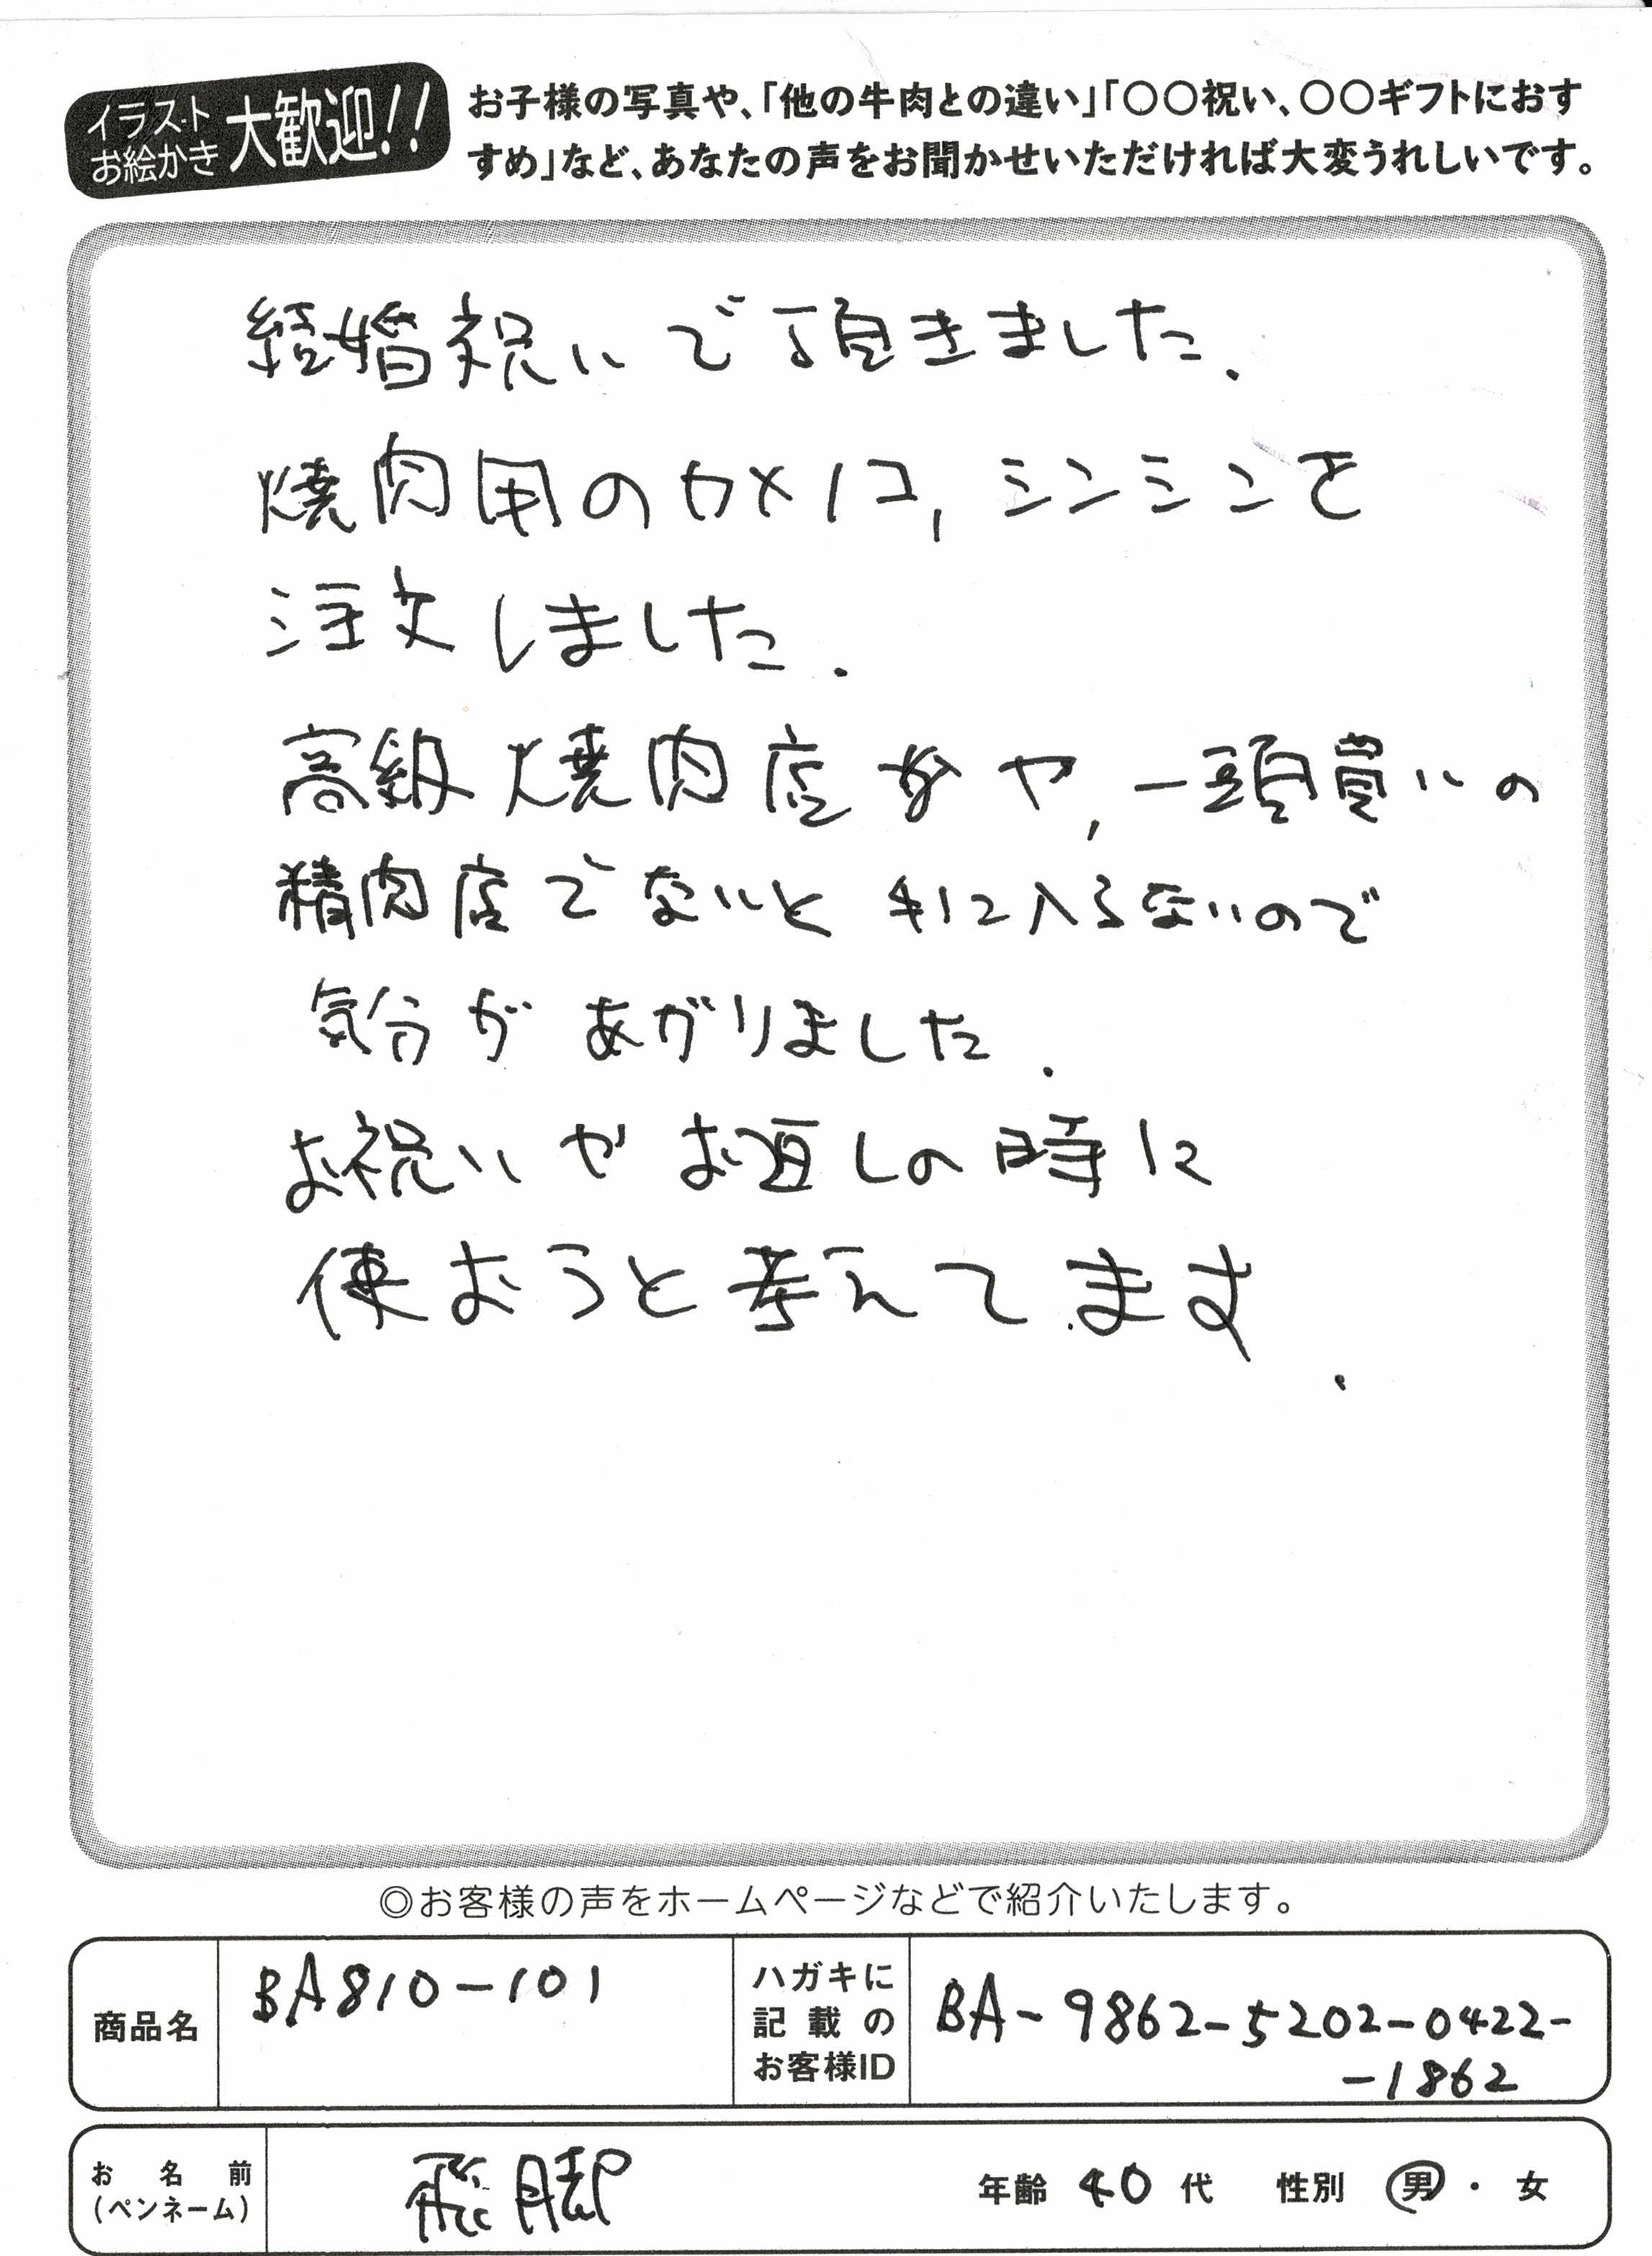 イラスト
お絵かき
大歓迎!!
お子様の写真や、「他の牛肉との違い」「〇〇祝い、〇〇ギフトにおす
すめ」など、あなたの声をお聞かせいただければ大変うれしいです。
結婚祝いで頂きました.
焼肉用のカメノコ, シンシンを
注文しました.
高級焼肉店や, 一頭買いの
精肉店でないと手に入らないので
気分があがりました.
お祝いやお返しの時に
使おうと考えてます.
◎お客様の声をホームページなどで紹介いたします。
商品名
BA810-101
ハガキに
記載の
お客様ID
BA-9862-5202-0422-
-1862
お名前
(ペンネーム)
飛脚
年齢 40 代 性別 男・女